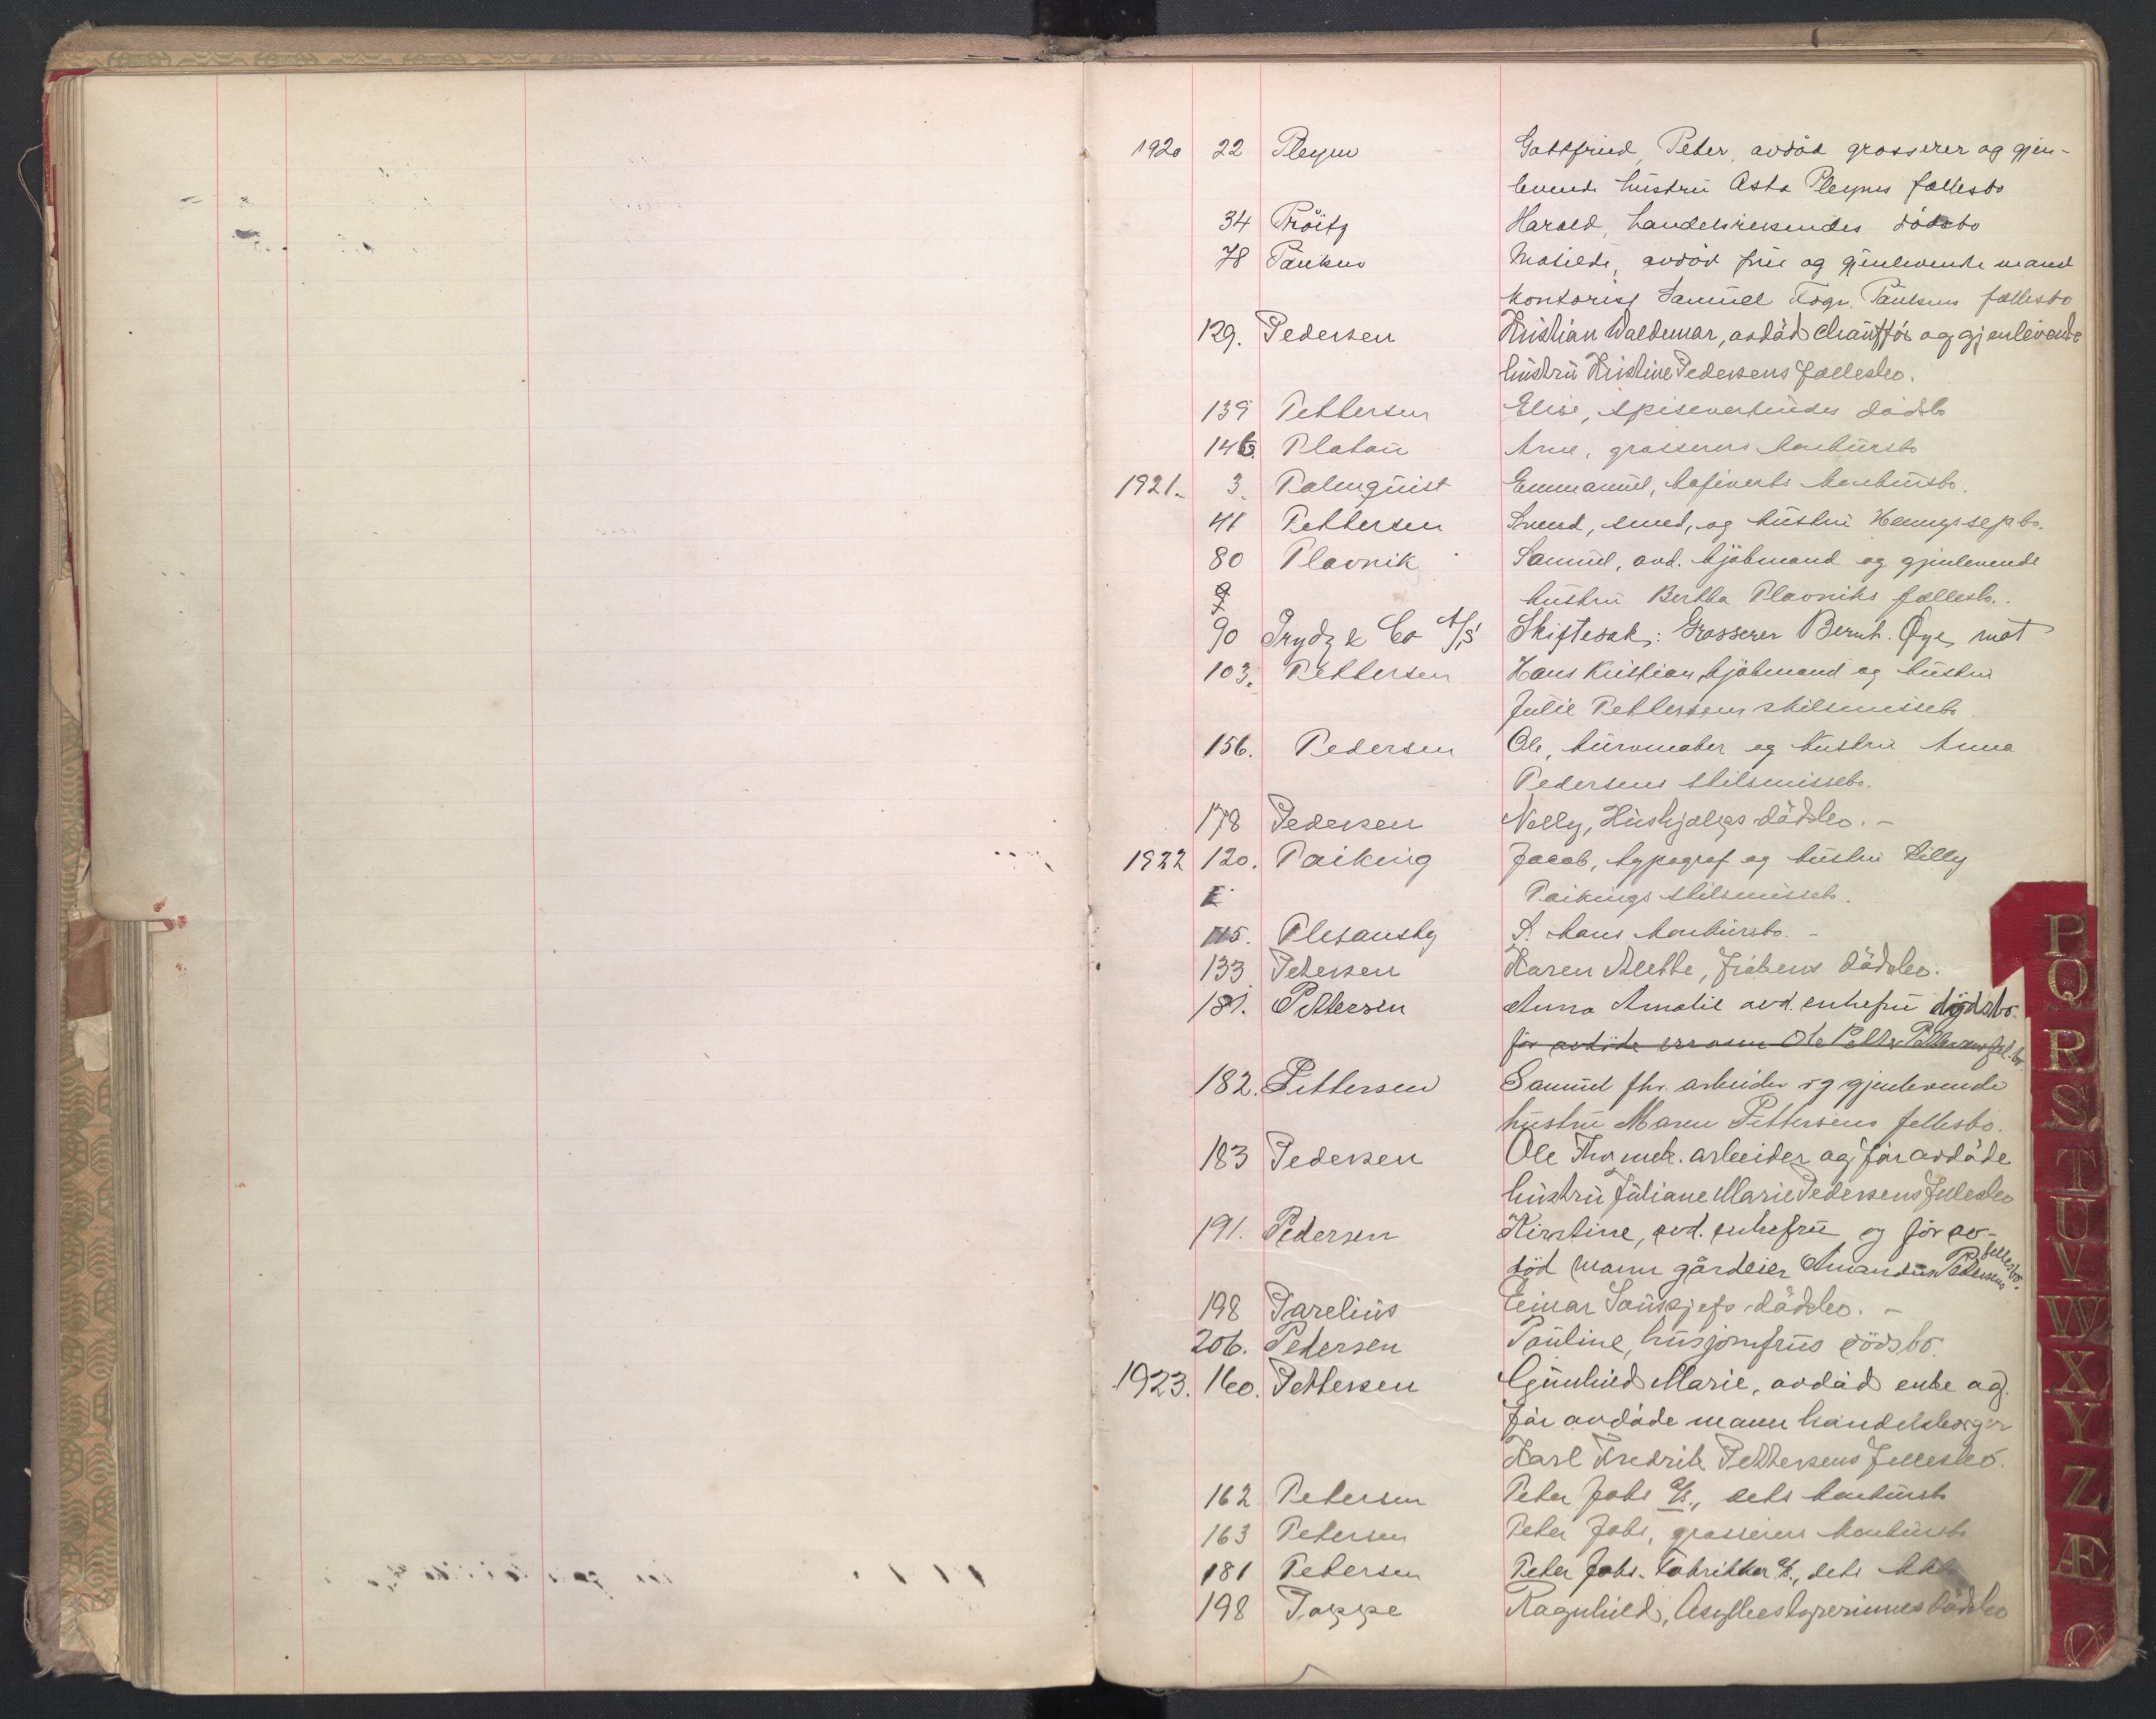 1920 22 Pleym Gottfried, Peter, avdød grosserer og gjen-
levende hustru Asta Pleyms fællesbo
34 Prøitz Harald, handelsreisendes dødsbo
78 Paulsen Matilde, avdød frue og gjenlevende mand
kontorist Samuel Togr. Paulsens fællesbo
129. Pedersen Kristian Waldemar, avdød chauffør og gjenlevende
hustru Kristine Pedersens fællesbo.
139 Pettersen Elise, spisevertindes dødsbo
146. Platou Arne, grosserers konkursbo
1921. 3. Palmquist Emmanuel, kafeverts konkursbo.
41 Pettersen Svend, smed, og hustru Hennys sep.bo.
80 Plavnik Samuel, avd. kjøbmand og gjenlevende
hustru Bertha Plavniks fællesbo.
90 Prydz & Co A/S Skiftesak: Grosserer Bernh. Øye mot
103. Pettersen Hans Kristian, kjøbmand og hustru
Julie Pettersens skilsmissebo
156. Pedersen Ole, kurvmaker og hustru Anna
Pedersens skilsmissebo.
178 Pedersen Nelly, Hushjælps dødsbo. -
1922 120. Paiking Jacob, typograf og hustru Lilly
Paikings skilsmissebo.
115. Plesansky S. Mans konkursbo. -
133 Petersen Karen Alette, Frøkens dødsbo.
181. Pettersen Anna Amalie avd. enkefru dødsbo.
før avdøde Ole Petter Pettersens fel.bo
182. Pettersen Samuel fhv. arbeider og gjenlevende
hustru Maren Pettersens fellesbo.
183 Pedersen Ole arbeider og før avdøde
hustru Juliane Marie Pedersens Fellesbo
191. Pedersen Kirstine, avd. enkefru og før av-
død mann gårdeier Amandus Pedersens fellesbo.
198 Parelius Einar dødsbo. -
206. Pedersen Pauline, husjomfrus dødsbo.
1923. 160. Pettersen Gunhild Marie, avdød enke og
før avdøde mann handelsborger
Karl Fredrik Pettersens Fellesbo.
162 Petersen Peter Johs A/S., dets konkursbo
163 Petersen Peter Johs, grosserers konkursbo
181 Petersen Peter Johs. Fabrikker A/S., dets
198 Poppe Ragnhild, Asylbestyrerinnes dødsbo
P
Q
R
S
T
U
V
W
X
Y
Z
Æ
Ø